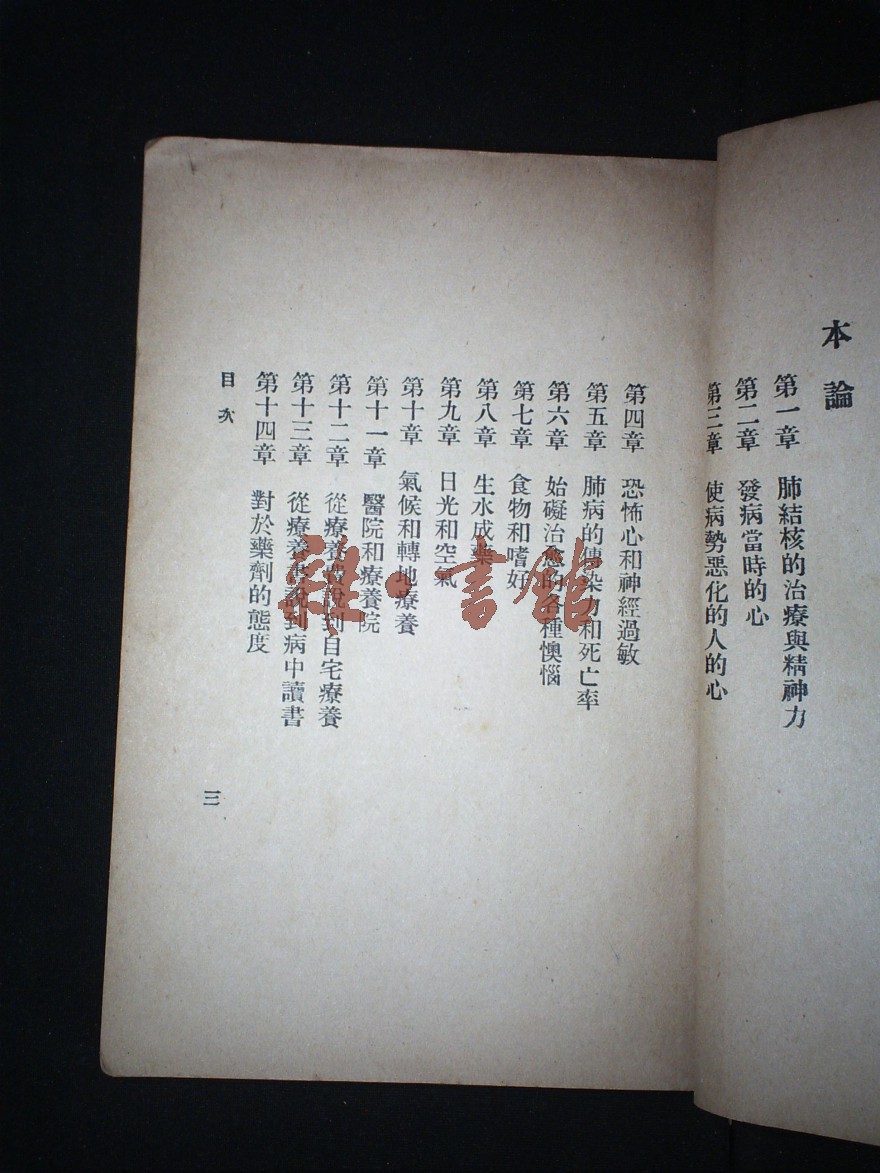 本論
第一章 肺結核的治療與精神力
第二章 發病當時的心
第三章 使病勢惡化的人的心
第四章 恐怖心和神經過敏
第五章 肺病的傳染力和死亡率
第六章 始礙治愈的各種懊惱
第七章 食物和嗜好
第八章 生水成藥
第九章 日光和空氣
第十章 氣候和轉地療養
第十一章 醫院和療養院
第十二章 從療養費說到自宅療養
第十三章 從療養說到病中讀書
第十四章 對於藥劑的態度
目次
三
雜·書館